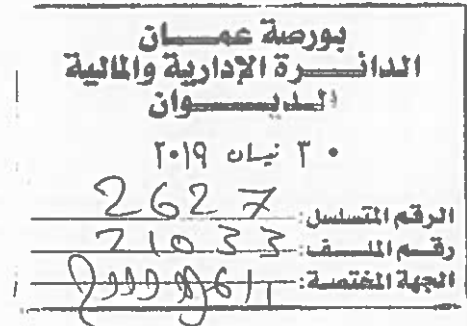 بورصة عمـــان
الدائـــــرة الإدارية والمالية
الديـــــوان
٠٣ نيسان ٢٠١٩
الرقم المتسلسل: 2627
رقـم الملـــف: 21033
الجهة المختصة: